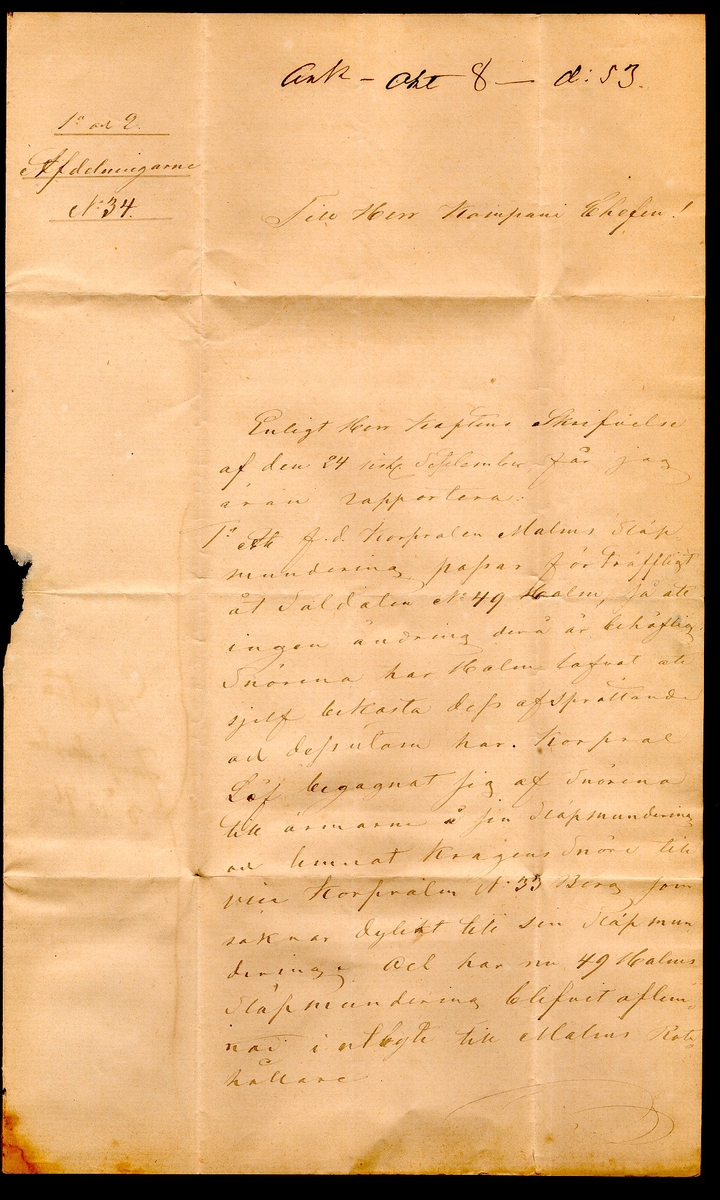 Ank – Okt 8 – d: 53.
1a och 2.
Afdelningarne
No 34.
Till Herr Kompani Chefen!
Enligt Herr Kaptens Skrifvelse
af den 24 sistl. September får jag
äran rapportera:
1o Att f.d. Korpralen Malms Släp
mundering passar förträffligt
åt Soldaten No 49 Halm, så att
ingen ändring derå är behöflig.
Snörena har Halm lofvat att
sjelf bekosta dess afsprättande
och dessutom har Korpral
Löf begagnat sig af Snörena
till ärmarne å sin Släpmundering
och lemnat Kragens Snöre till
vice Korpralen No 33 Berg som
saknar dylikt till sin Släpmun
dering. Och har nu 49 Halms
Släpmundering blifvit aflem,
nad i utbyte till Malms Rote,
hållare